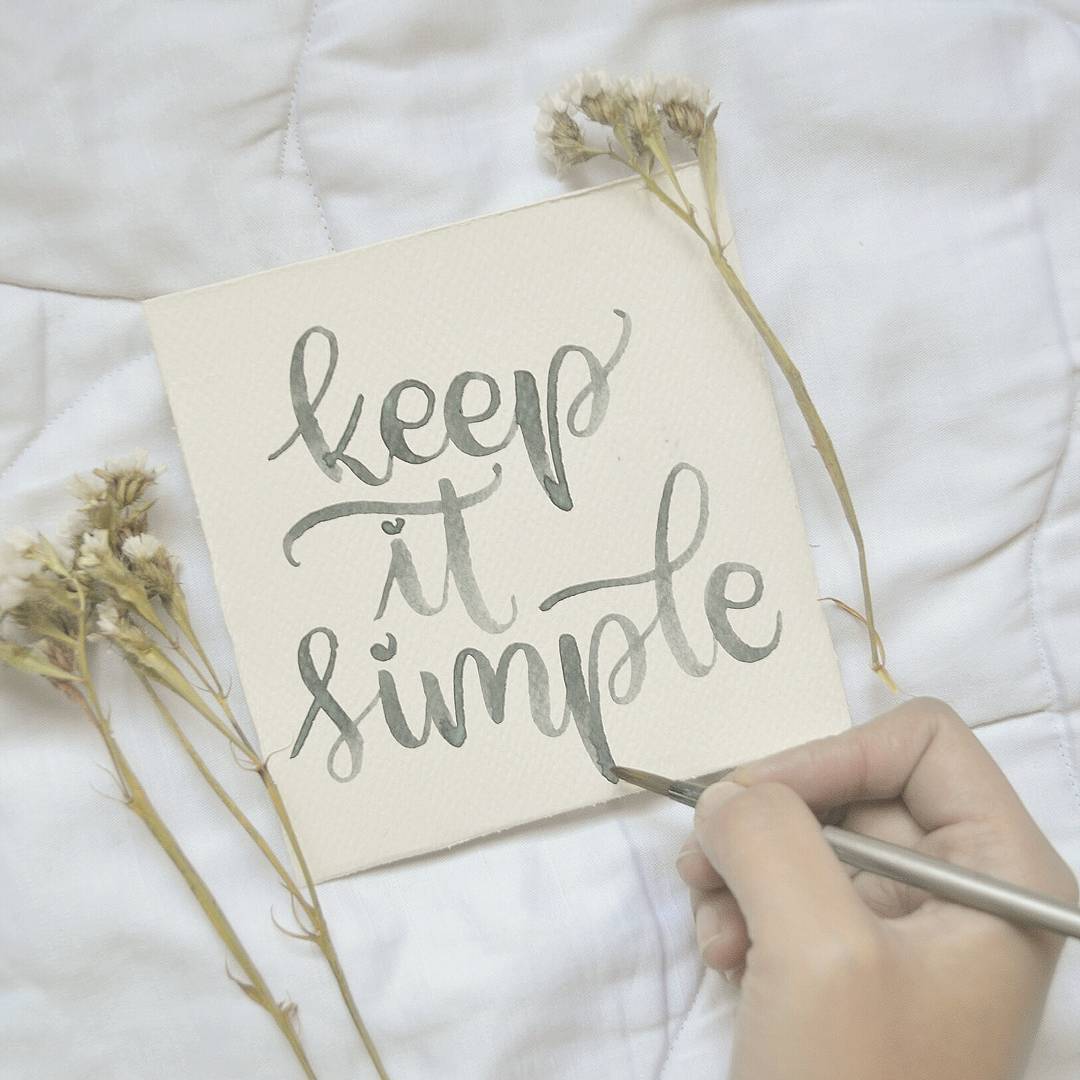 keep
it
simple